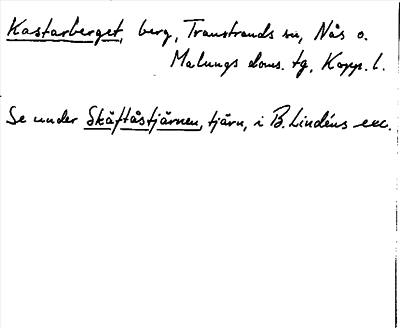 Kastarberget, berg, Transtrands sn, Nås o.
Malungs doms. tg, Kopp. l.
Se under Skäftåstjärnen, tjärn, i B. Lindéns exc.